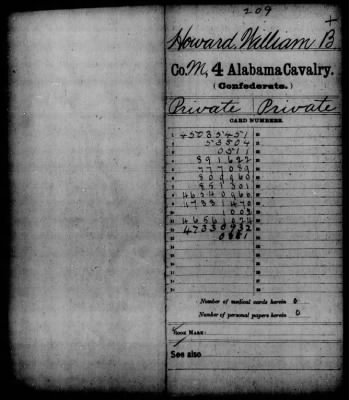 209
+
Howard, William B
Co. M, 4 Alabama Cavalry.
(Confederate.)
Private Private
CARD NUMBERS.
1 45035451
2 53504
3 0511
4 891622
5 777089
6 809960
7 851301
8 46340960
9 47331470
10 1008
11 46561074
12 47330932
13 0881
Number of medical cards herein 0
Number of personal papers herein 0
BOOK MARK:
See also